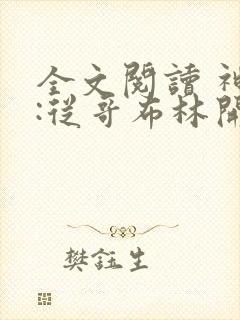 全文閱讀 神
:從哥布林開
樊鈺生